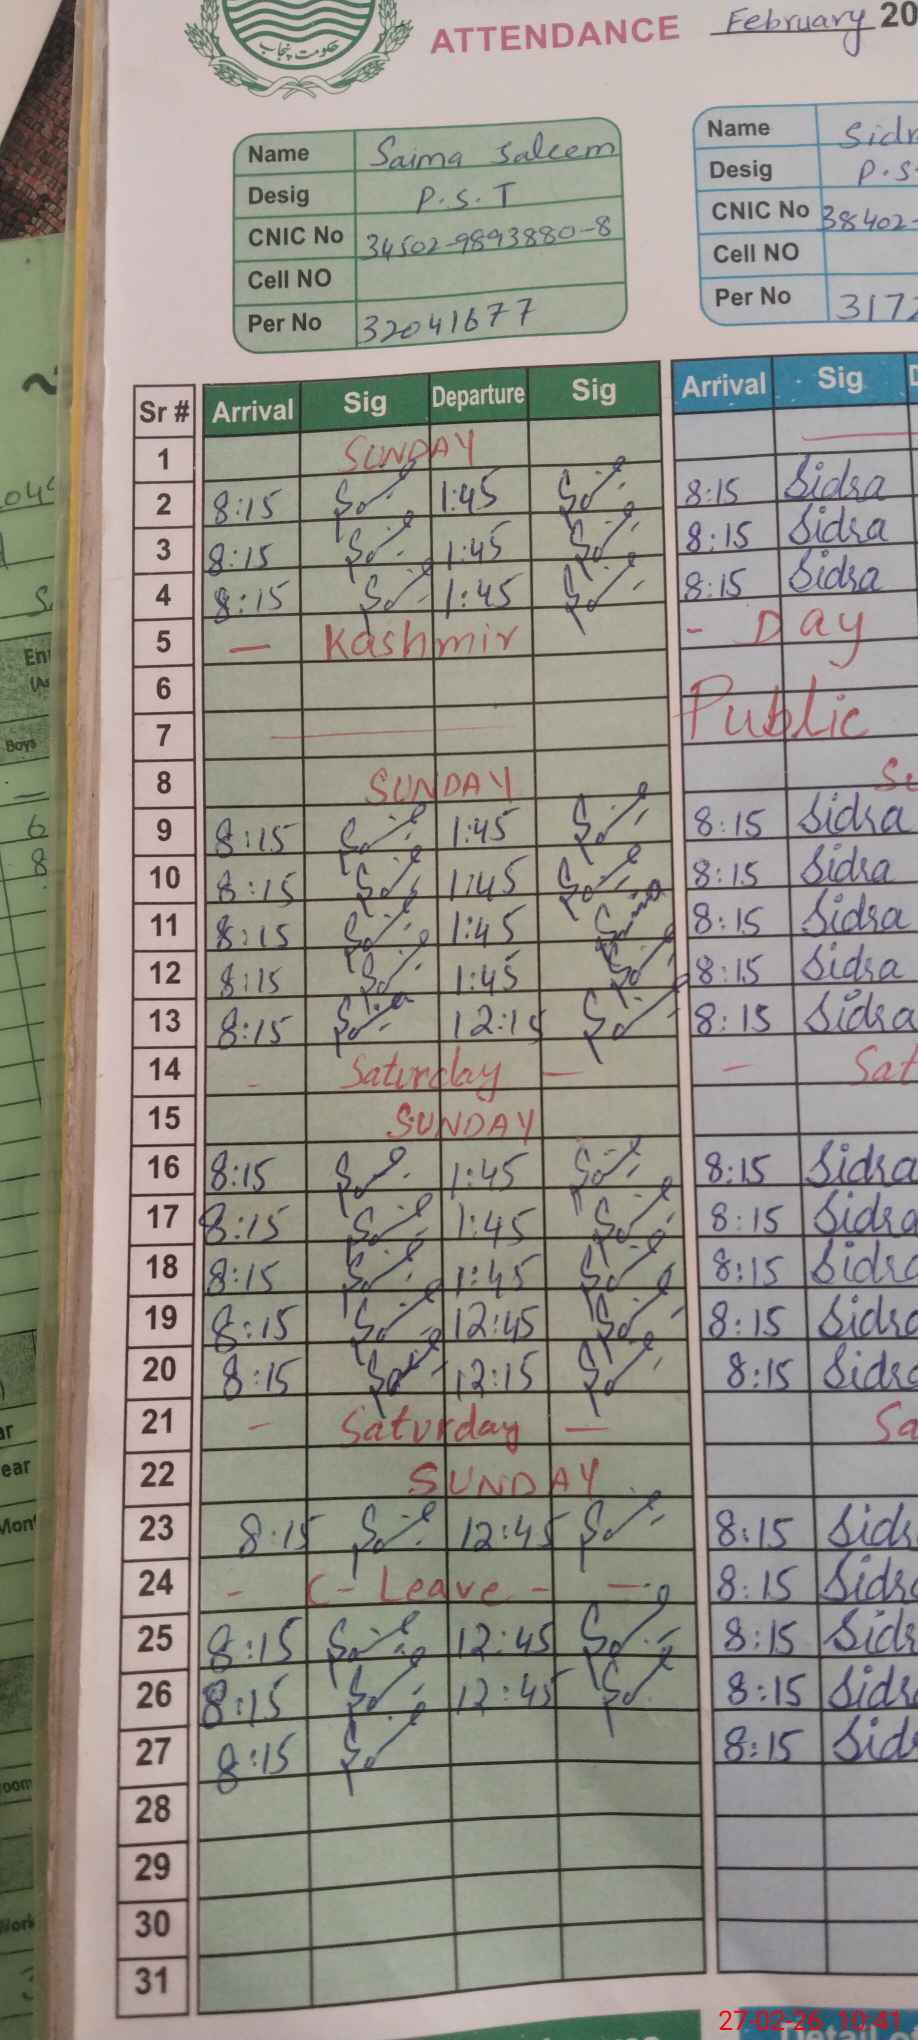 حکومت پنجاب
ATTENDANCE February 20
Name Saima Saleem
Desig P.S.T
CNIC No 34502-9893880-8
Cell NO
Per No 32041677
Name Sidr
Desig P.S
CNIC No 38402-
Cell NO
Per No 3172
Sr # Arrival Sig Departure Sig Arrival Sig
1 SUNDAY
2 8:15 1:45 8:15 Sidra
3 8:15 1:45 8:15 Sidra
4 8:15 1:45 8:15 Sidra
5 — Kashmir - Day
6
7 Public
8 SUNDAY Su
9 8:15 1:45 8:15 Sidra
10 8:15 1:45 8:15 Sidra
11 8:15 1:45 8:15 Sidra
12 8:15 1:45 8:15 Sidra
13 8:15 12:15 8:15 Sidra
14 - Saturday — — Sat
15 SUNDAY
16 8:15 1:45 8:15 Sidra
17 8:15 1:45 8:15 Sidra
18 8:15 1:45 8:15 Sidra
19 8:15 12:45 8:15 Sidra
20 8:15 12:15 8:15 Sidra
21 - Saturday — Sa
22 SUNDAY
23 8:15 12:45 8:15 Sidr
24 - C-Leave - — 8:15 Sidr
25 8:15 12:45 8:15 Sidr
26 8:15 12:45 8:15 Sidr
27 8:15 8:15 Sid
28
29
30
31
27-02-26 10:41